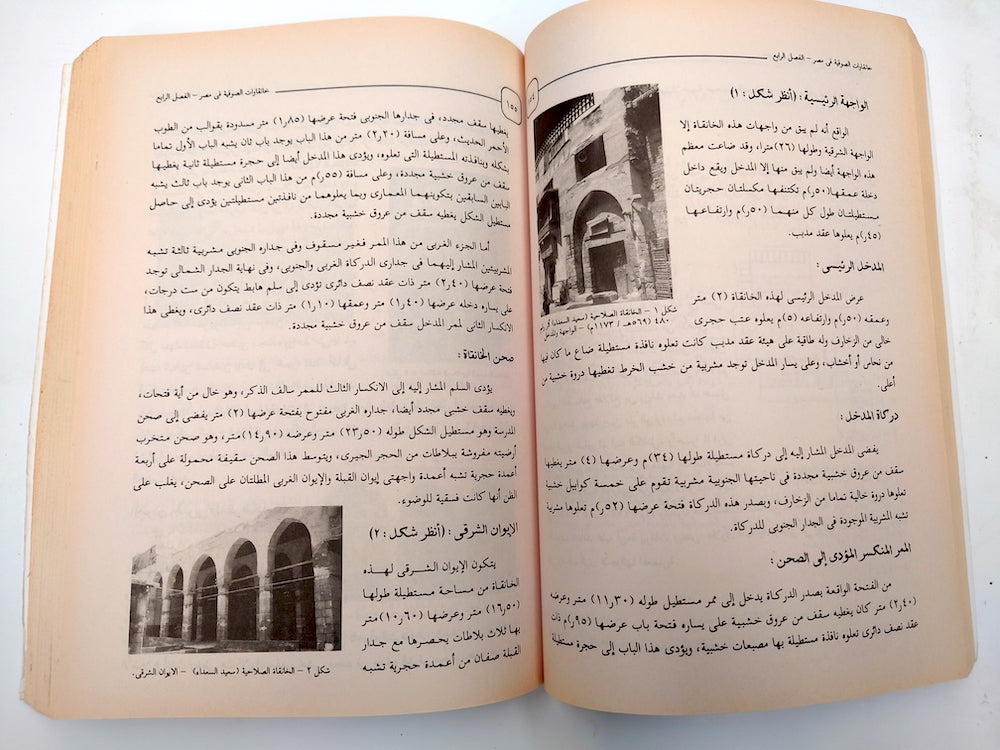 خانقاوات الصوفية فى مصر - الفصل الرابع
الواجهة الرئيسية : (أنظر شكل : ١)
الواقع أنه لم يبق من واجهات هذه الخانقاة إلا
الواجهة الشرقية وطولها (٢٦)مترا، وقد ضاعت معظم
هذه الواجهة أيضا ولم يبق منها إلا المدخل ويقع داخل
دخلة عمقها(٥٠ر)م تكتنفها مكسلتان حجريتان
مستطيلتان طول كل منهما (٥٠ر)م وارتفاعها
(٤٥ر)م يعلوها عقد مدبب.
المدخل الرئيسى :
عرض المدخل الرئيسى لهذه الخانقاة (٢) متر
وعمقه (٥٠ر)م وارتفاعه (٥)م يعلوه عتب حجرى
خالى من الزخارف وله طاقية على هيئة عقد مدبب كانت تعلوه نافذة مستطيلة ضاع ما كان فيها
من نحاس أو أخشاب، وعلى يسار المدخل توجد مشربية من خشب الخرط تغطيها دروة خشبية من
أعلى.
شكل ١ - الخانقاة الصلاحية (سعيد السعداء)
(٥٦٩هـ / ١١٧٣م) - الواجهة والمدخل
دركاة المدخل :
يفضى المدخل المشار إليه إلى دركاة مستطيلة طولها (٣٤)م وعرضها (٤) متر يغطيها
سقف من عروق خشبية مجددة فى ناحيتها الجنوبية مشربية تقوم على خمسة كوابيل خشبية
تعلوها دروة خالية تماما من الزخارف، وبصدر هذه الدركاة فتحة عرضها (٥٢ر)م تعلوها مشربية
تشبه المشربية الموجودة فى الجدار الجنوبى للدركاة.
الممر المنكسر المؤدى إلى الصحن :
من الفتحة الواقعة بصدر الدركاة يدخل إلى ممر مستطيل طوله (٣٠ر١١) متر وعرضه
(٤٠ر٢) متر كان يغطيه سقف من عروق خشبية على يساره فتحة باب عرضها (٩٥ر)م ذات
عقد نصف دائرى تعلوه نافذة مستطيلة بها مصبعات خشبية، ويؤدى هذا الباب إلى حجرة مستطيلة
خانقاوات الصوفية فى مصر - الفصل الرابع
١٥٥
يغطيها سقف مجدد، فى جدارها الجنوبى فتحة عرضها (٨٥ر١) متر مسدودة بقوالب من الطوب
الأحمر الحديث، وعلى مسافة (٢٠ر٢) متر من هذا الباب يوجد باب ثان يشبه الباب الأول تماما
بشكله وبنافذته المستطيلة التى تعلوه، ويؤدى هذا المدخل أيضا إلى حجرة مستطيلة ثانية يغطيها
سقف من عروق خشبية مجددة، وعلى مسافة (٥٥ر)م من هذا الباب الثانى يوجد باب ثالث يشبه
البابين السابقين بتكوينهما المعمارى وبما يعلوهما من نافذتين مستطيلتين يؤدى إلى حاصل
مستطيل الشكل يغطيه سقف من عروق خشبية مجددة.
أما الجزء الغربى من هذا الممر فغير مسقوف وفى جداره الجنوبى مشربية ثالثة تشبه
المشربيتين المشار إليهما فى جدارى الدركاة الغربى والجنوبى، وفى نهاية الجدار الشمالى توجد
فتحة عرضها (٤٠ر٢) متر ذات عقد نصف دائرى تؤدى إلى سلم هابط يتكون من ست درجات،
على يساره دخله عرضها (٤٠ر١) متر وعمقها (١٠ر١) متر ذات عقد نصف دائرى، ويغطى هذا
الانكسار الثانى لممر المدخل سقف من عروق خشبية مجددة.
صحن الخانقاة :
يؤدى السلم المشار إليه إلى الانكسار الثالث للممر سالف الذكر، وهو خال من أية فتحات،
ويغطيه سقف خشبى مجدد أيضا، جداره الغربى مفتوح بفتحة عرضها (٢) متر يفضى إلى صحن
المدرسة وهو مستطيل الشكل طوله (٥٠ر٢٣) متر وعرضه (٩٠ر١٤)متر، وهو صحن متخرب
أرضيته مفروشة ببلاطات من الحجر الجيرى، ويتوسط هذا الصحن سقيفة محمولة على أربعة
أعمدة حجرية تشبه أعمدة واجهتى إيوان القبلة والإيوان الغربى المطلتان على الصحن، يغلب على
الظن أنها كانت فسقية للوضوء.
الإيوان الشرقى : (أنظر شكل : ٢)
يتكون الإيوان الشرقى لهذه
الخانقاة من مساحة مستطيلة طولها
(٥٠ر١٦) متر وعرضها (٦٠ر١٠)متر
بها ثلاث بلاطات يحصرها مع جدار
القبلة صفان من أعمدة حجرية تشبه
شكل ٢ - الخانقاة الصلاحية (سعيد السعداء) - الايوان الشرقى.